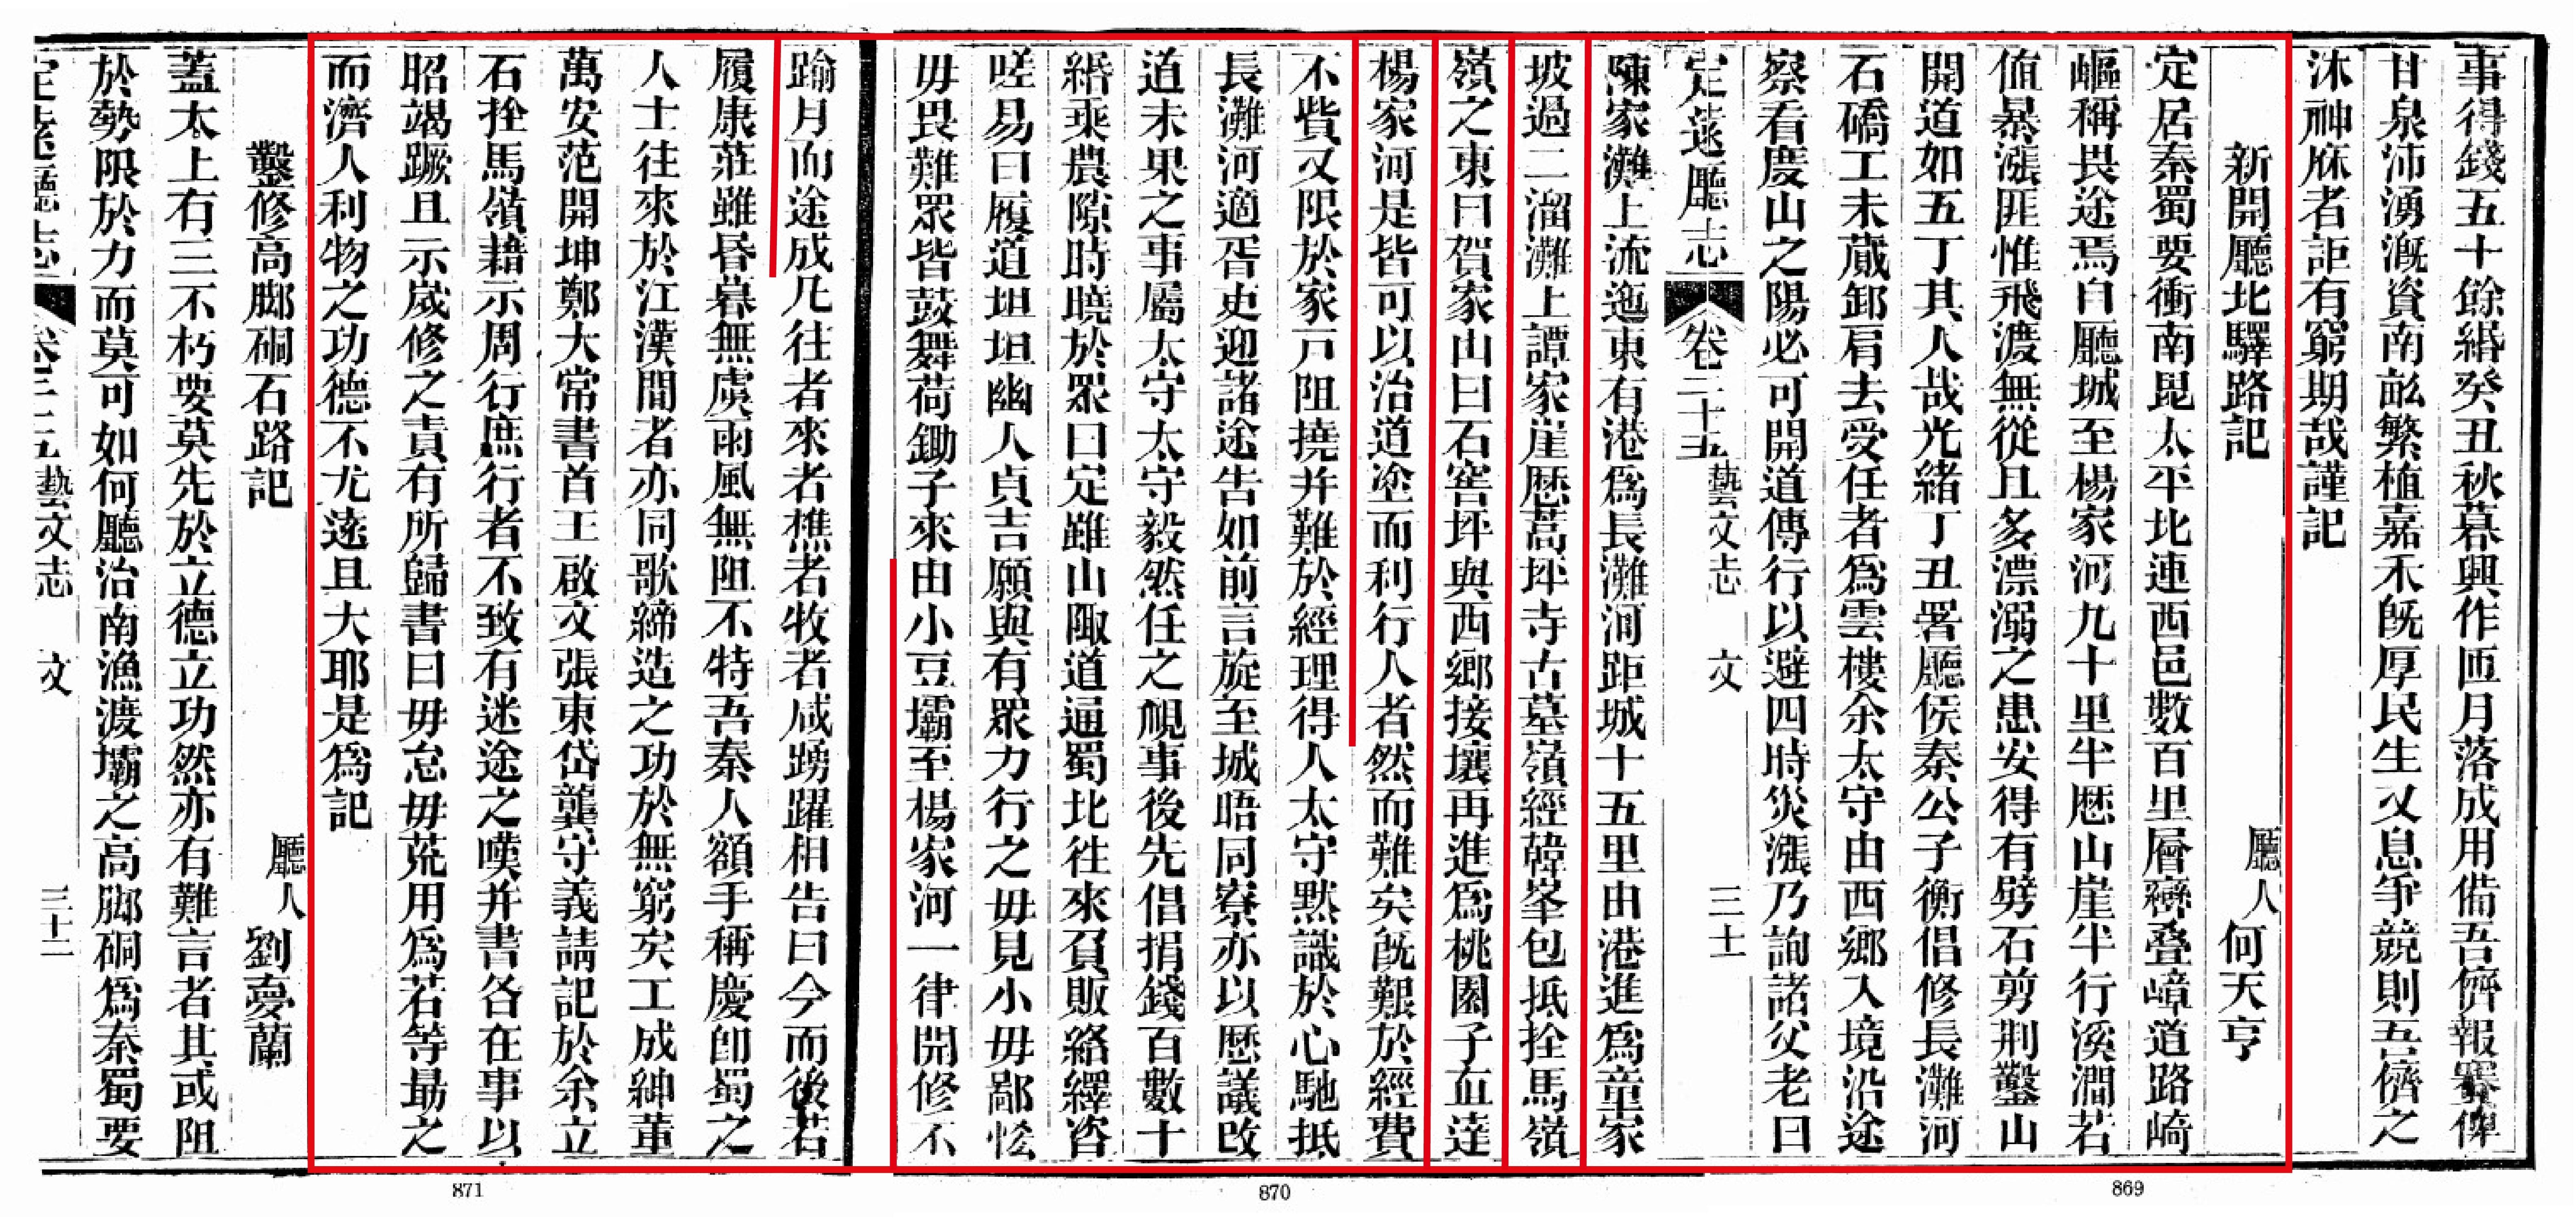 事得錢五十餘緡癸丑秋暮興作匝月落成用備吾儕報賽俾
甘泉沛湧溉資南畝繁植嘉禾旣厚民生又息爭競則吾儕之
沐神庥者詎有窮期哉謹記
新開廳北驛路記 廳人 何天亨
定居秦蜀要衝南毘太平北連西邑數百里層巒叠嶂道路崎
嶇稱畏途焉自廳城至楊家河九十里半歷山崖半行溪澗若
値暴漲匪惟飛渡無從且多漂溺之患安得有劈石剪荆鑿山
開道如五丁其人哉光緒丁丑署廳侯秦公子衡倡修長灘河
石磽工未蕆卸肩去受任者爲雲樓余太守由西鄉入境沿途
察看慶山之陽必可開道傳行以避四時災漲乃詢諸父老曰
定遠廳志 卷二十五 藝文志 文 三十一
陳家灘上流迤東有港爲長灘河距城十五里由港進爲童家
坡過二溜灘上譚家崖歷蒿坪寺古墓嶺經韓峯包抵拴馬嶺
嶺之東曰賀家山曰石窖坪與西鄉接壤再進爲桃園子直達
楊家河是皆可以治道塗而利行人者然而難矣旣艱於經費
不貲又限於家戸阻撓并難於經理得人太守默識於心馳抵
長灘河適胥吏迎諸途告如前言旋至城晤同寮亦以歷議改
道未果之事屬太守太守毅然任之視事後先倡捐錢百數十
緡乘農隙時曉於眾曰定雖山陬道通蜀北往來負販絡繹咨
嗟易曰履道坦坦幽人貞吉願與有眾力行之毋見小毋鄙慳
毋畏難眾皆鼓舞荷鋤子來由小豆壩至楊家河一律開修不
踰月而途成凡往者來者樵者牧者咸踴躍相告曰今而後若
履康莊雖昏暮無虞雨風無阻不特吾秦人額手稱慶卽蜀之
人士往來於江漢間者亦同歌締造之功於無窮矣工成紳董
萬安范開坤鄭大常書首王啟文張東岱龔守義請記於余立
石拴馬嶺藉示周行庶行者不致有迷途之嘆并書各在事以
昭竭蹶且示歲修之責有所歸書曰毋怠毋荒用爲若等勗之
而濟人利物之功德不尤遠且大耶是爲記
鑿修高脚硐石路記 廳人 劉夢蘭
蓋太上有三不朽要莫先於立德立功然亦有難言者其或阻
於勢限於力而莫可如何廳治南漁渡壩之高脚硐爲秦蜀要
定遠廳志 卷二十五 藝文志 文 三十二
871 870 869